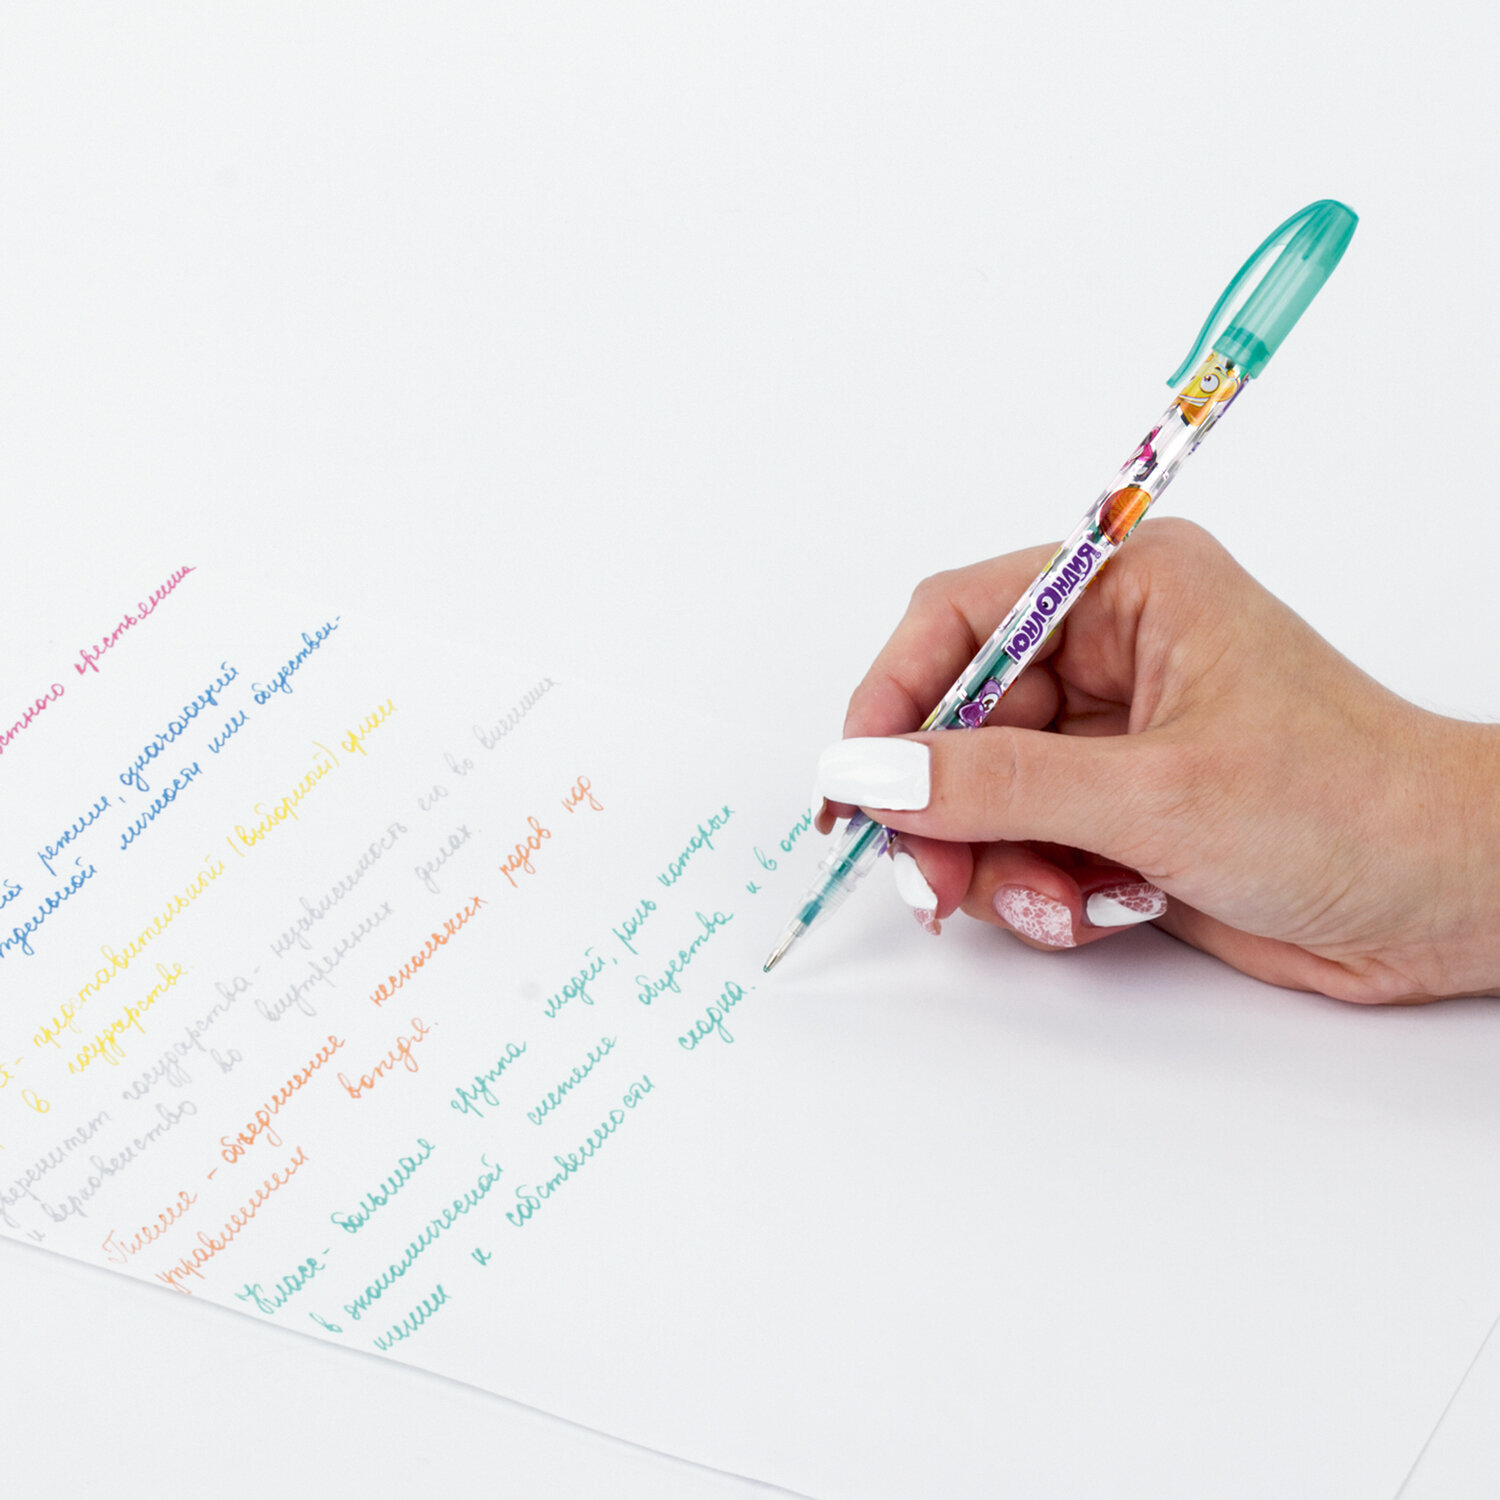 стного крестьянина
ий режим, означающий
тдельной личности или обществен-
- представительный (выборный) орган
в государстве
веренитет государства - независимость его во внешних
и верховенство во внутренних делах.
Племя - объединение нескольких родов под
управлением вождя.
Класс - большая группа людей, роль которых
в экономической системе общества и в отн
шении к собственности сходна.
ЮНЛАНДИЯ